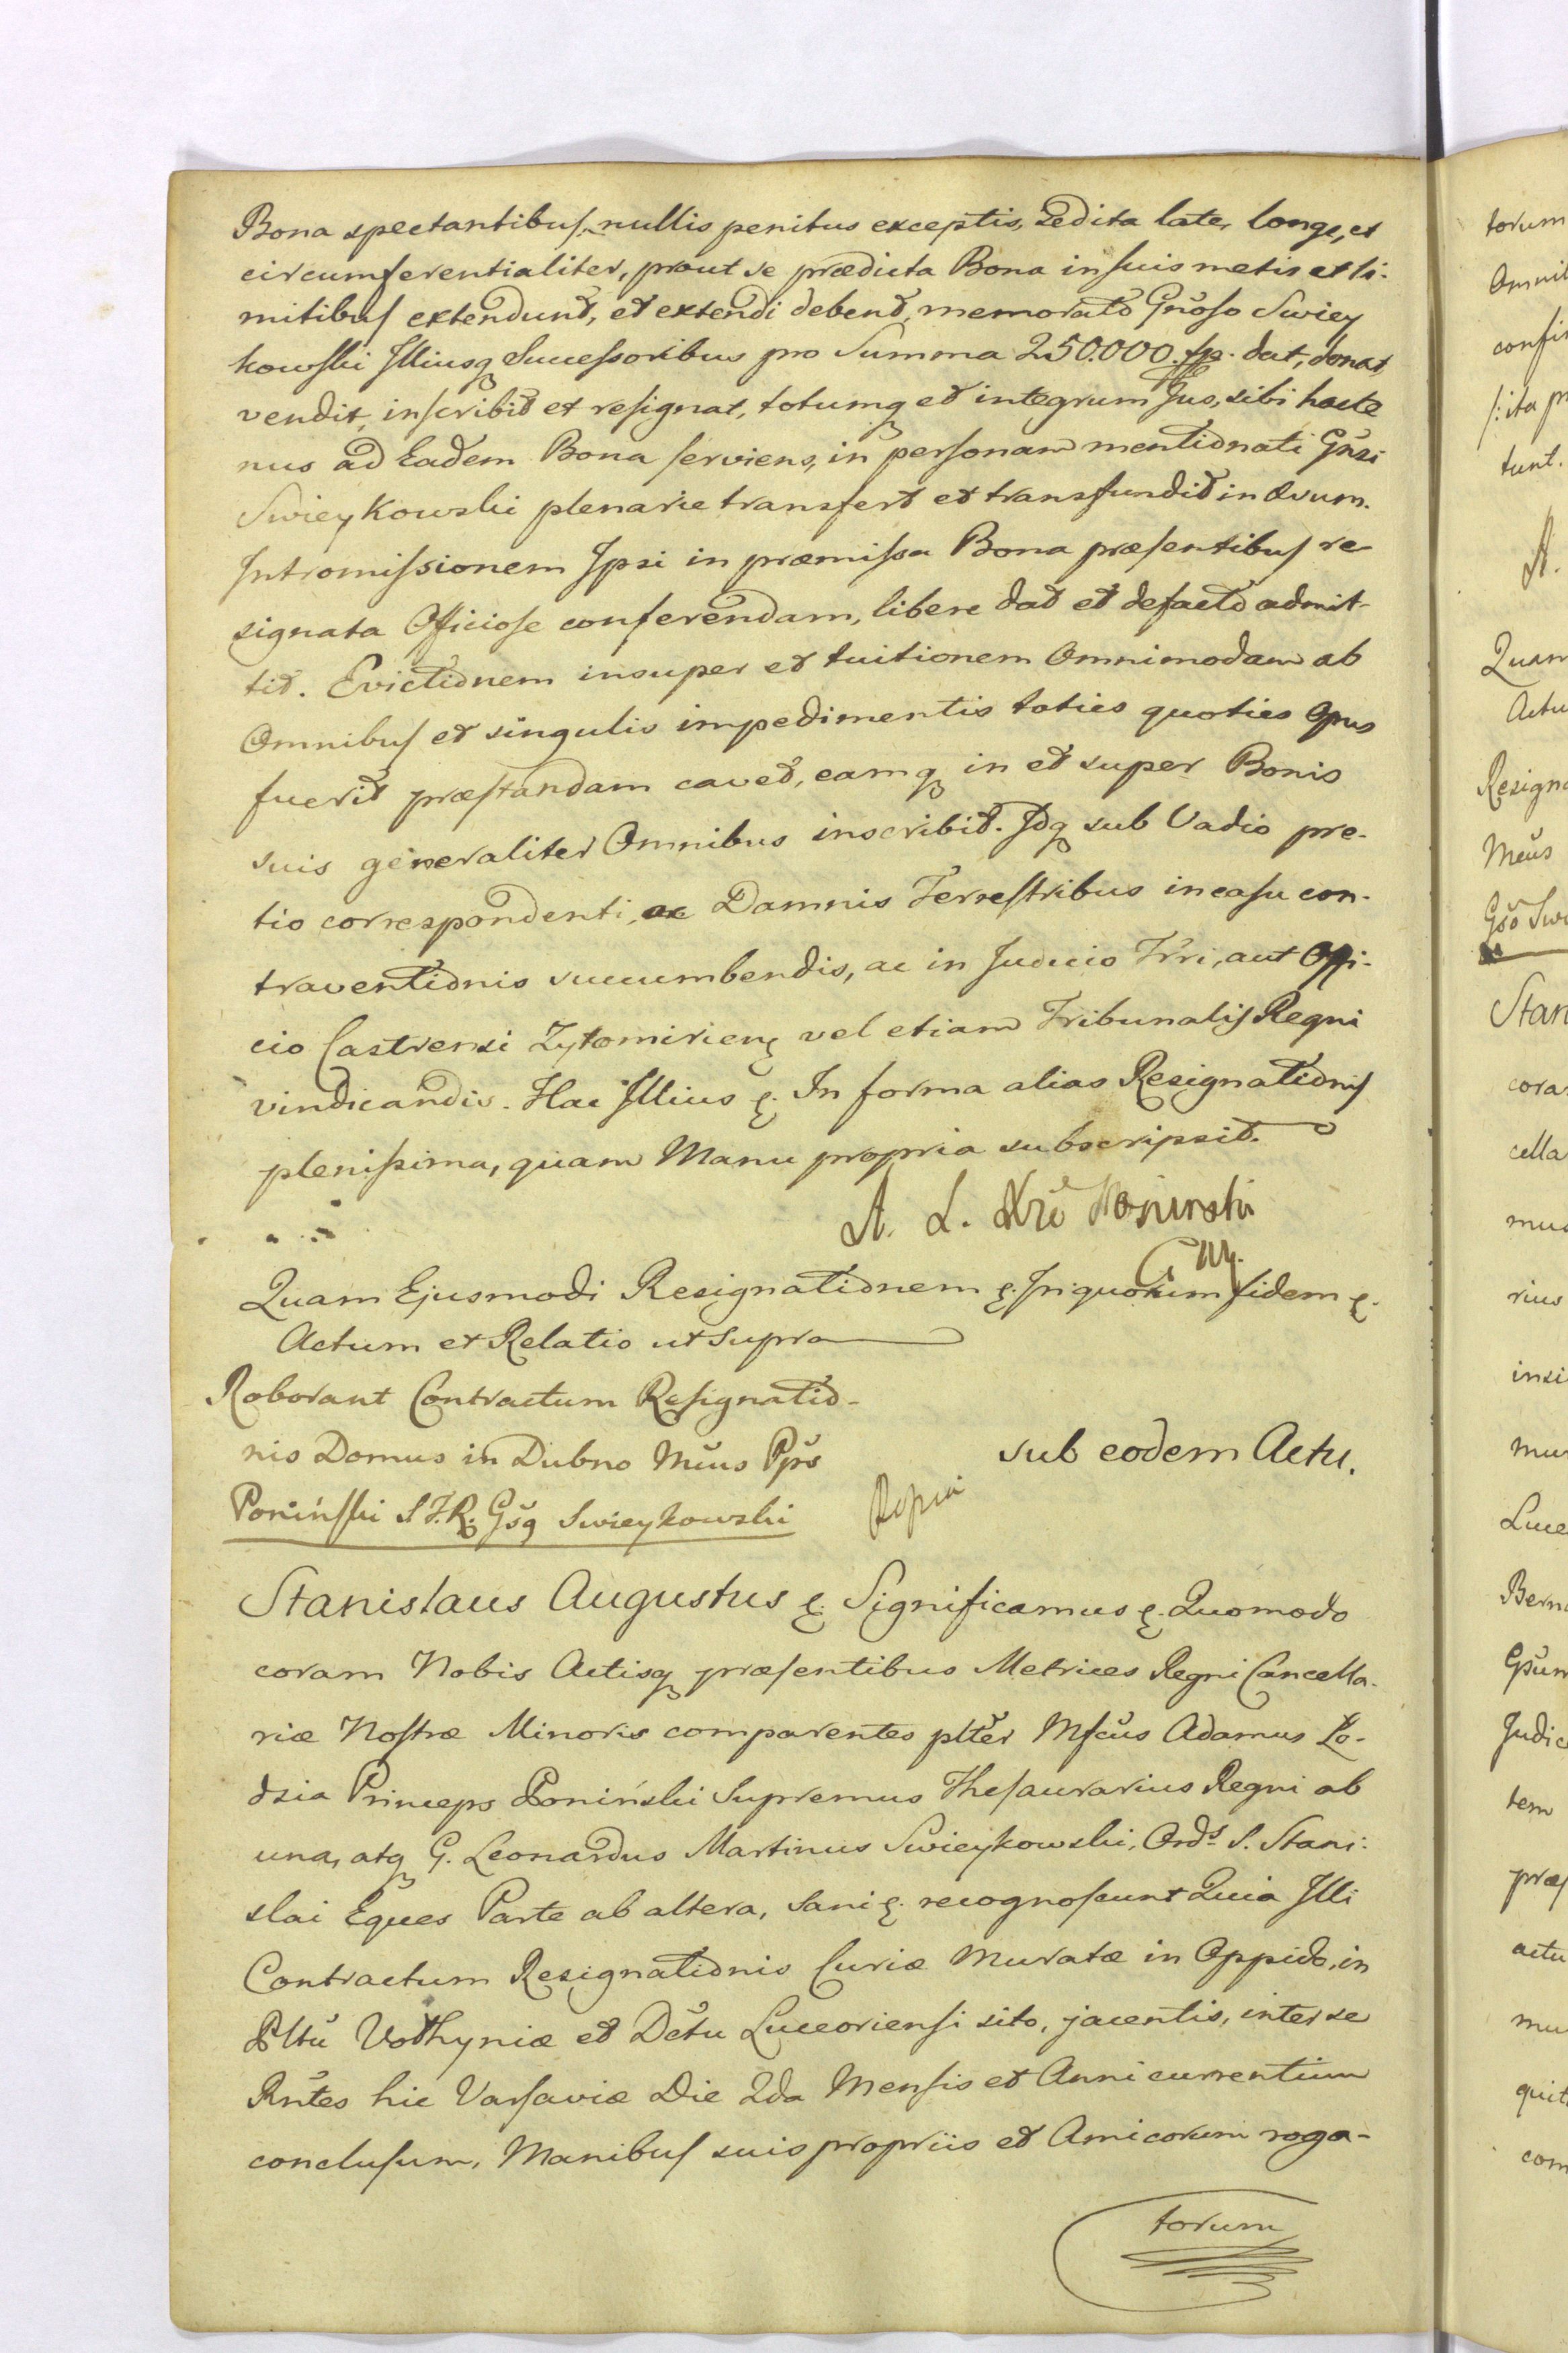 Bona spectantibus, nullis penitus exceptis, sed ita late, longe, et
circumferentialiter, prout se prædicta Bona in suis metis et li-
mitibus extendunt, et extendi debent, memorato Gnoso Swiey
kowski Illiusq Successoribus pro Summa 250.000 fp. dat, donat,
vendit, inscribit et resignat, totumq et integrum Jus, sibi hacte
nus ad Eadem Bona serviens, in personam mentionati Gnsi
Swieykowski plenarie transfert et transfundit in ævum.
Intromissionem Ipsi in præmissa Bona præsentibus re
signata Officiose conferendam, libere dat et defacto admit-
tit. Evictionem insuper et tuitionem Omnimodam ab
Omnibus et singulis impedimentis toties quoties Opus
fuerit præstandam cavet, eamq in et super Bonis
suis generaliter Omnibus inscribit. Idq sub Vadio pre-
tio correspondenti, ac Damnis Terrestribus in casu con-
traventionis succumbendis, ac in Judicio Trri, aut Offi-
cio Castrensi Zytomirien vel etiam Tribunalis Regni
vindicandis. Hac Illius &. In forma alias Resignationis
plenissima, quam Manu propria subscripsit.
A. L. Xże Poninski
Quam Ejusmodi Resignationem &. In quorum fidem &.
Actum et Relatio ut Supra
Roborant Contractum Resignatio-
nis Domus in Dubno Mcus Pps
Poniński S.T.R. Gsq Swieykowski
sub eodem Actu.
Stanislaus Augustus &. Significamus &. Quomodo
coram Nobis Actisq præsentibus Metrices Regni Cancella-
riæ Nostræ Minoris comparentes plter Mfcus Adamus Lo-
dzia Princeps Poniński Supremus Thesaurarius Regni ab
una, atq G. Leonardus Martinus Swieykowski, Ords S. Stani-
slai Eques Parte ab altera, Sani &. recognoscunt Quia Illi
Contractum Resignationis Curiæ Muratæ in Oppido, in
Pltu Volhyniæ et Dctu Luceoriensi sito, jacentis, inter se
Rntes hic Varsaviæ Die 2da Mensis et Anni currentium
conclusum, Manibus suis propriis et Amicorum roga-
torum